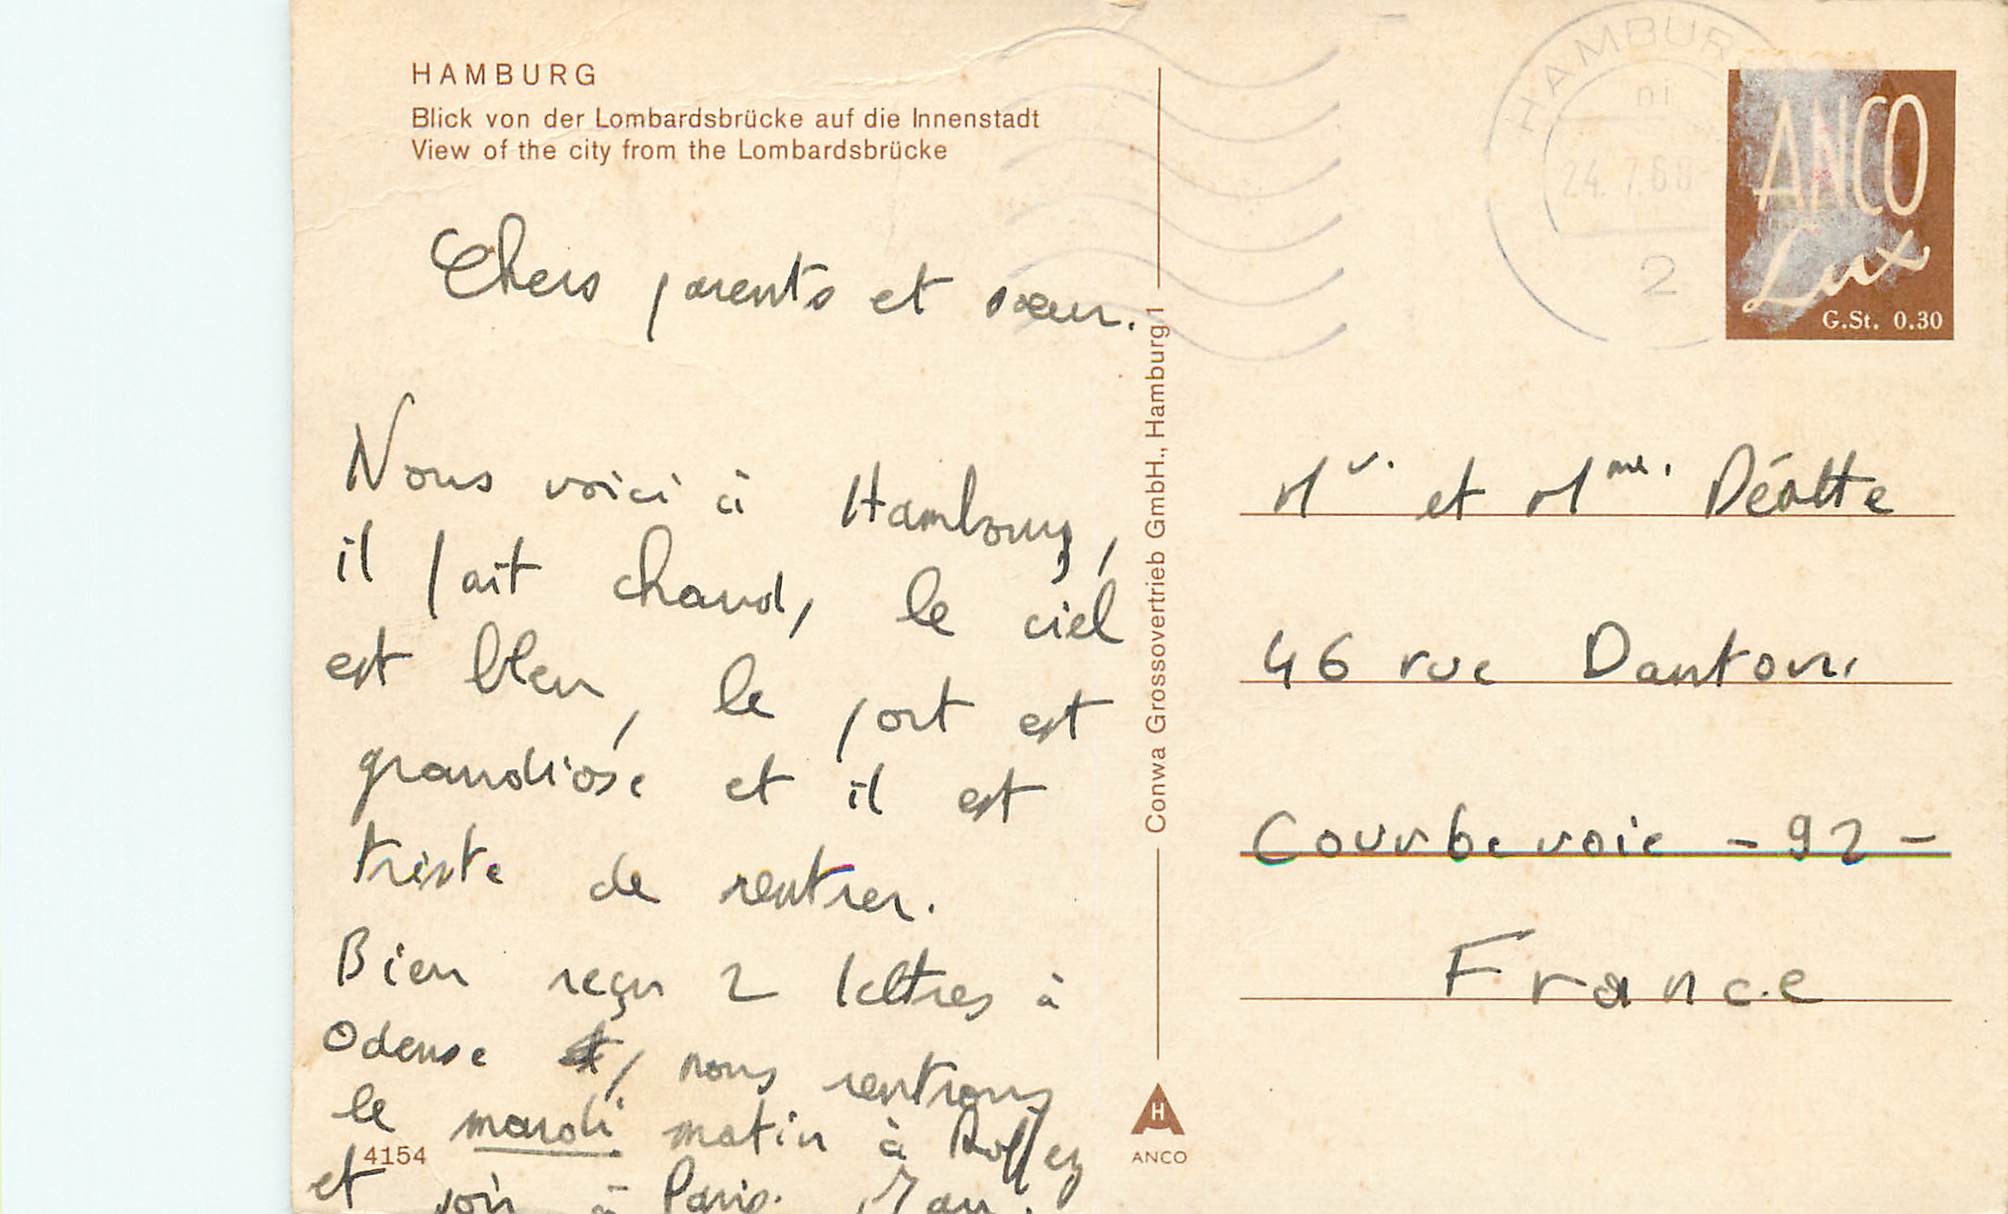 HAMBURG
Blick von der Lombardsbrücke auf die Innenstadt
View of the city from the Lombardsbrücke
Chers parents et sœur.
Nous voici à Hambourg,
il fait chaud, le ciel
est bleu, le port est
grandiose et il est
triste de rentrer.
Bien reçu 2 lettres à
Odense, nous rentrons
le mardi matin à
et soir à Paris.
4154
Conwa Grossovertrieb GmbH., Hamburg 1
H
ANCO
HAMBUR
ni
24.7.68
2
ANCO
Lux
G.St. 0.30
Mr. et Mme. Déotte
46 rue Danton
Courbevoie - 92 -
France